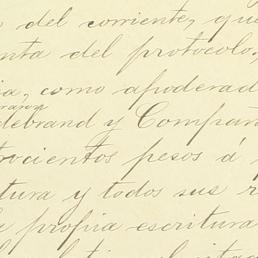 del corriente, que
nta del protocolo,
ia, como apoderad
debrand y Compañ
trocientos pesos á
tura y todos sus
propia escritura